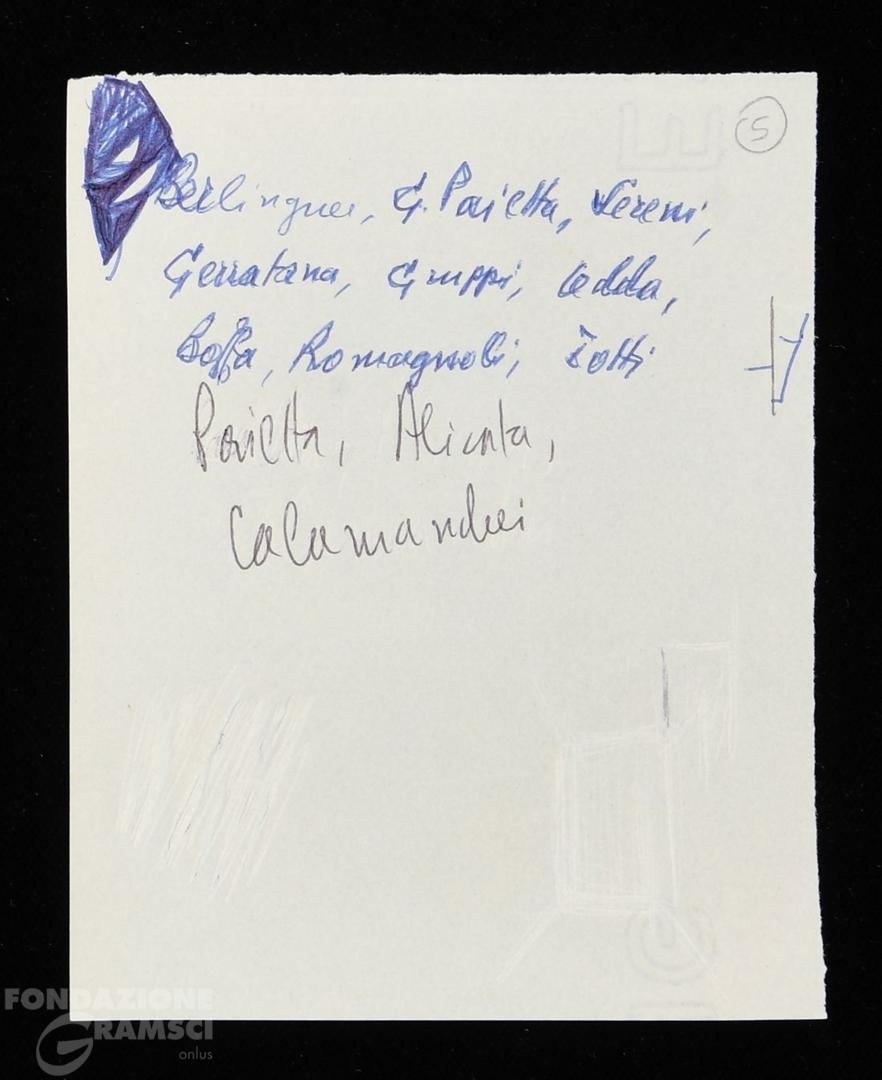 5
Berlinguer, G. Pajetta, Sereni,
Gerratana, Gruppi, Ledda,
Boffa, Romagnoli, Iotti
Pajetta, Alicata,
Calamandrei
FONDAZIONE
GRAMSCI
onlus